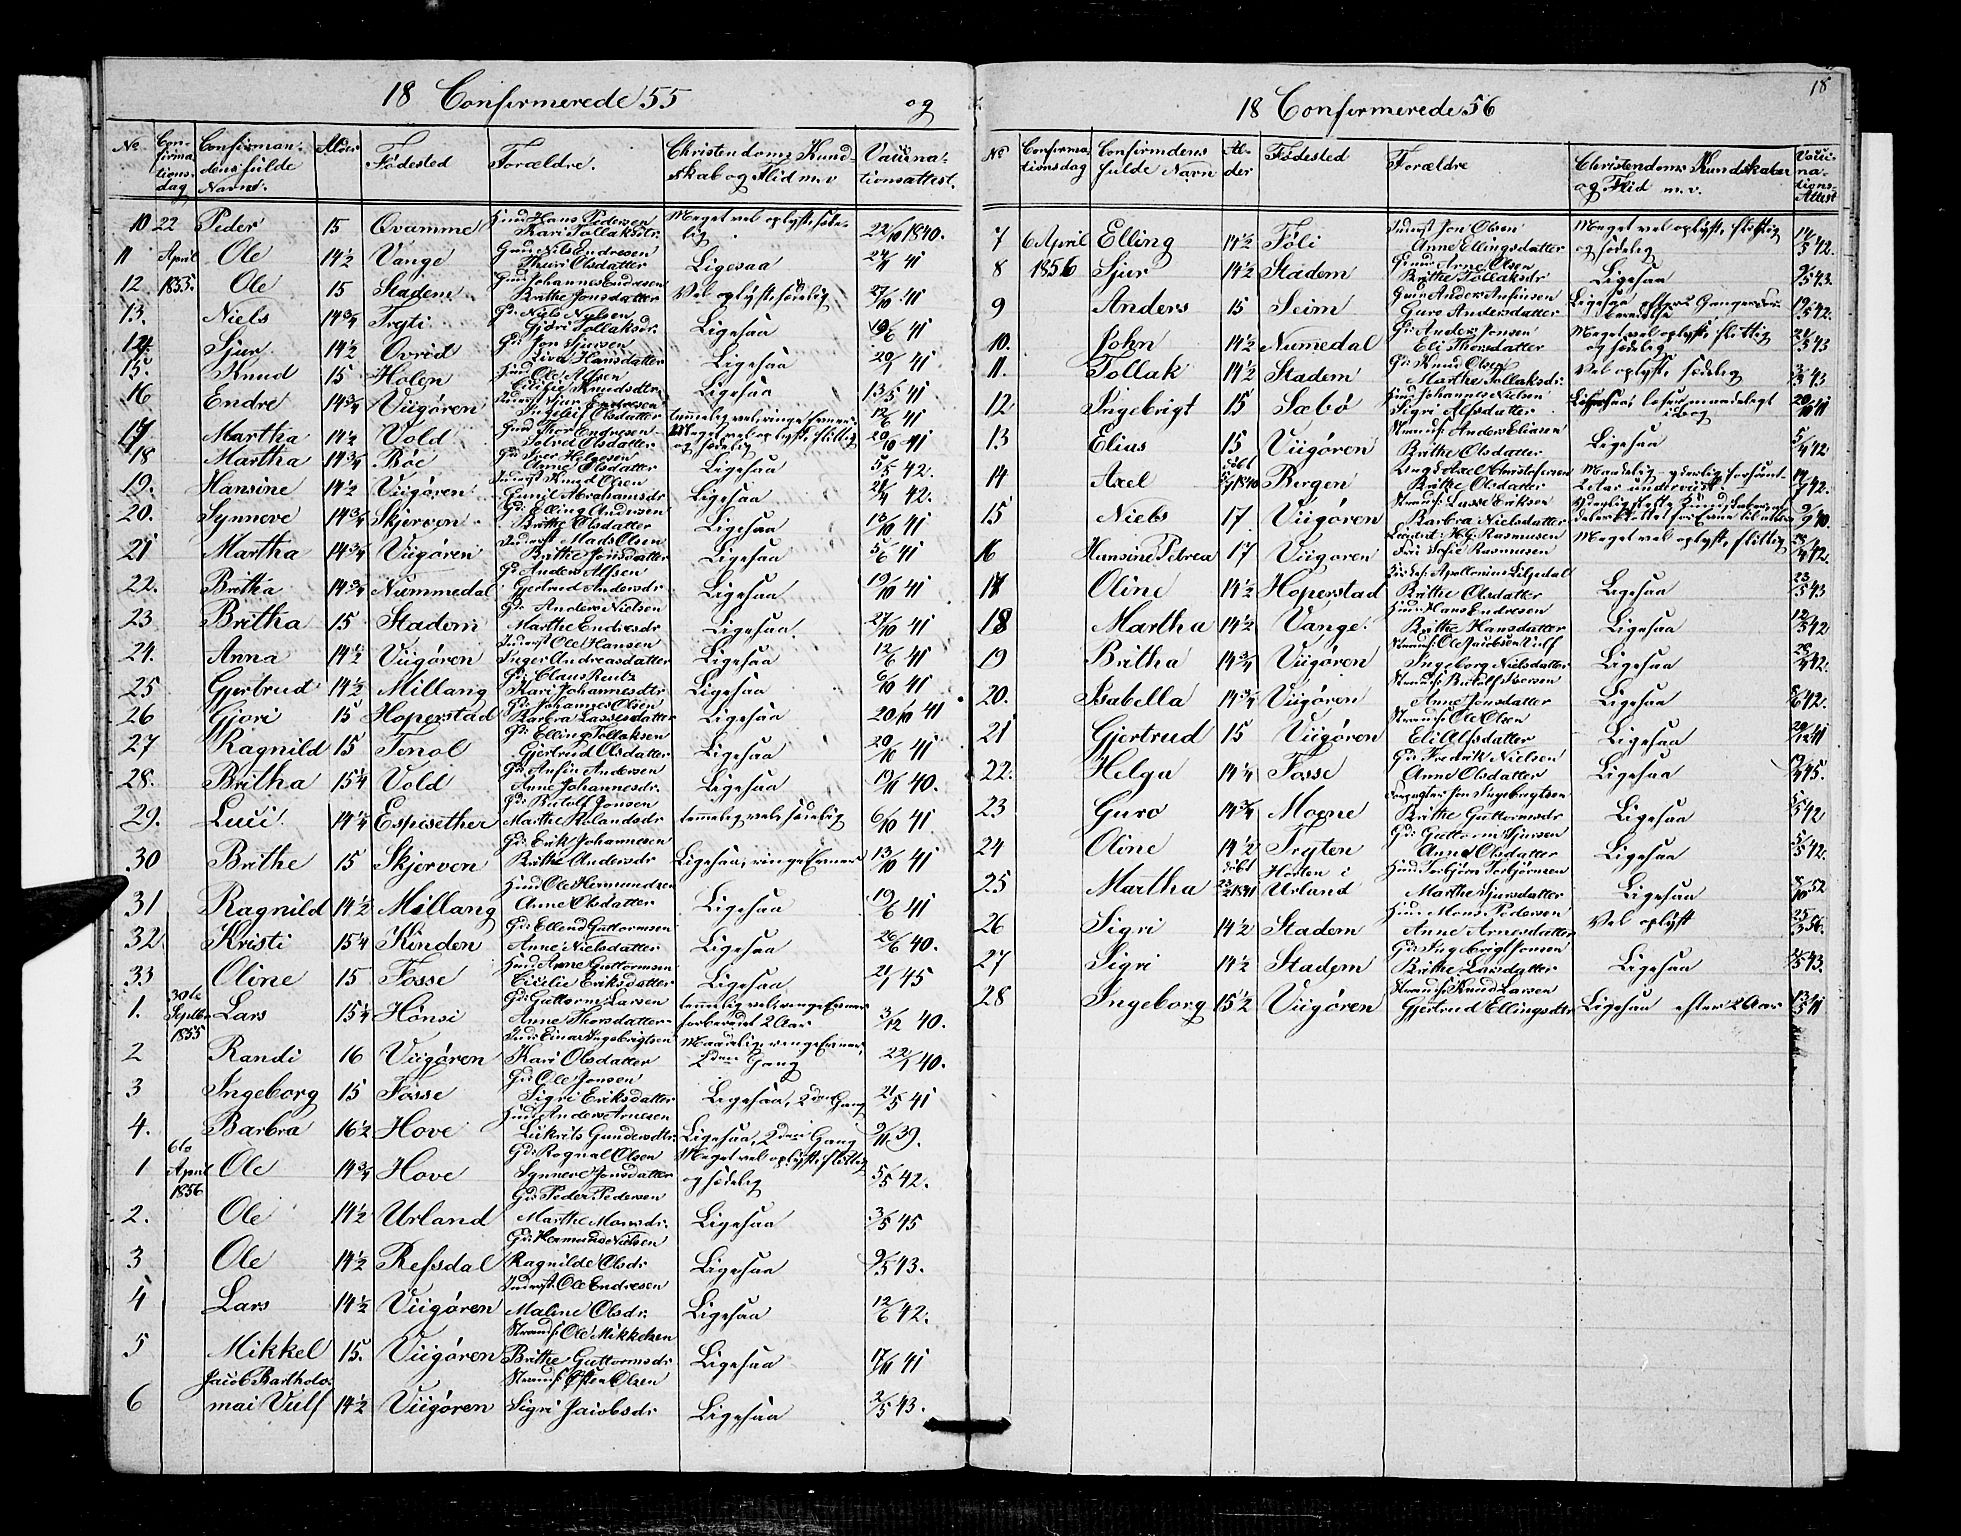 18 Confirmerede 55 og
No Confirmationsdag Confirmandens fulde Navn. Alder Fødested Forældre. Christendoms Kundskab og Flid m.v Vaccinationsattest.
10 22 Peder 15 Qvamme Huusm. Hans Pedersen Kari Tollaksdtr. Meget vel oplyst, sædelig 22/10 1840.
11 April Ole 14½ Vange Gmd. Nils Endresen Thuri Olsdatter Ligesaa 41
12 1855. Ole 15 Stadem Gmd. Johannes Endresen Brithe Jonsdatter Vel oplyst, sædelig 27/10 41
13. Niels 14¾ Tryti Gd. Niels Nilsen Gjøri Tollaksdr. Ligesaa 19/6 41
14 Sjur 14½ Ovrid Gd. Jon Sjursen Liva Hansdatter Ligesaa 41
15. Knud 15 Holen Ole Alfsen Cicilie Knudsdtr. Ligesaa 13/5 41
16 Endre 14¾ Viigøren Inderst Sjur Endresen Ingeleif Olsdatter temmelig vel, ringe Evner 12/6 41
17 Martha 14½ Vold Thor Endresen Sølvei Olsdatter Meget vel oplyst, flittig og sædelig 20/10 41
18 Martha 14¾ Böe Gd. Iver Helgesen Anne Olsdatter Ligesaa 5/5 42.
19. Hansine 14½ Viigøren Inderst Knud Olsen Gunil Abrahamsdr Ligesaa 42.
20. Synneve 14¾ Skjerven Gd. Elling Andersen Brithe Olsdatter Ligesaa 13/10 41
21 Martha 14¾ Viigøren Inderst Mads Olsen Brithe Jonsdatter Ligesaa 5/6 41
22. Britha 14¾ Nummedal Gd. Anders Alfsen Gjertrud Andersdr Ligesaa 19/10 41
23 Britha 15 Stadem Gd. Anders Nielsen Marthe Endresdr Ligesaa. 27/10 41
24. Anna 14½ Viigøren Inderst Ole Hansen Inger Andreasdatter Ligesaa 12/6 41
25 Gjertrud 14½ Millang Gd. Claus Rentz Kari Johannesdtr Ligesaa 6/10 41
26 Gjøri 15 Hoperstad Gd. Johannes Olsen Barbra Lassesdatter Ligesaa 20/10 41
27 Ragnild 15 Tenol Gd. Elling Tollaksen Gjertrud Olsdatter Ligesaa 20/10 41
28. Britha 15¼ Vold Gd. Anfin Andersen Anne Johannesdr. Ligesaa 19/11 40.
29. Luci 14¼ Espesether Gd. Botolf Jonsen Marthe Rolandsdr temmelig vel, sædelig 6/10 41.
30 Brithe 15 Skjerven Gd. Erik Johannesen Brithe Andersdr Ligesaa, ringe Evner 13/10 41
31 Ragnild 14½ Millang Huusm. Ole Hermundsen Anne Olsdatter Ligesaa 19/6 41
32 Kristi 15¼ Kinden Gd. Ellend Guttormsen Anne Nielsdatter Ligesaa 26/6 40.
33 Oline 15 Fosse Huusm. Arne Guttormsen Cicilie Eriksdatter Ligesaa 45
1. 30te Septbr 1855 Lars 15¼ Hønsi Gd. Guttorm Larsen Anne Thorsdatter temmelig vel, ringe Evner forberedet 2 Aar 3/12 40.
2 Randi 16 Viigøren Inderst Einar Ingebrigtsen Kari Olsdatter Maadelig, ringe Evner, 2den Gang 40.
3 Ingeborg 15 Fosse Gd. Ole Jonsen Sigri Eriksdatter Ligesaa, 2den Gang 21/5 41
4. Barbra 16½ Hove Huusm. Anders Arnesen Lukrits Gundersdtr. Ligesaa, 2den Gang 2/11 39.
1 6te April 1856 Ole 14¾ Hove Gd. Rognal Olsen Synneve Jonsdatter Meget vel oplyst, flittig og sædelig 5/5 42.
2. Ole 14½ Urland Gd. Peder Pedersen Marthe Monsdr. Ligesaa 3/5 45
3 Ole 14½ Refsdal Gd. Hermund Nielsen Ragnilde Olsdr Ligesaa 2/5 43.
4 Lars 14½ Viigøren Inderst. Ole Endresen Maline Olsdr. Ligesaa 12/6 42.
5 Mikkel 15. Viigøren Strands. Ole Mikkelsen Brithe Guttormsdr Ligesaa 17/11 41
6 Jacob Bartholomai Vulf 14½ Viigøren Strands. Østen Olsen Sigri Jacobsdr Ligesaa 2/5 43.
18
18 Confirmerede 56
No Confirmationsdag Confirmdens fulde Navn Alder Fødested Forældre Christendoms Kundskaber og Flid m.v. Vaccinations-Attest
7 6 April Elling 14½ Føli Inderst Jon Olsen Anne Ellingsdatter Meget vel oplyst, flittig og sædelig 42.
8 1856 Sjur 14½ Stadem Gmd. Arne Olsen Brithe Tollaksdr Ligesaa 43.
9 Anders 15 Seim Gmd. Anders Anfinsen Guro Andersdatter Ligesaa 42.
10. John 14½ Numedal Gd. Anders Jonsen Eli Thorsdatter Meget vel oplyst, flittig og sædelig 43
11. Tollak 14½ Stadem Gd. Knud Olsen Marthe Tollaksdr. Vel oplyst, sædelig 43
12 Ingebrigt 15 Sæbø Huusm. Johannes Nielsen Sigri Alfsdatter Ligesaa, læser maadeligt i Bog 20/10 41
13 Elias 15 Viigøren Strands. Anders Eliasen Brithe Olsdatter Ligesaa 42.
14 Axel født 1840 Bergen Axel Christophersen Brithe Olsdatter Maadelig 42.
15 Niels 17 Viigøren Strands. Lasse Eriksen Barbra Nielsdatter 40.
16 Hansine Petrea 17 Viigøren H. G. Rasmusen Sofie Rasmusen Meget vel oplyst, flittig 42.
17 Oline 14½ Hoperstad Apollonius Liljedal Brithe Olsdatter Ligesaa 43
18 Martha 14½ Vange. Huusm. Hans Endresen Brithe Hansdatter Ligesaa 42
19 Britha 14¾ Viigøren Strands: Ole Jacobsen Vulf Ingeborg Nielsdatter Ligesaa 42.
20. Isabella 14¾ Viigøren Strands: Botolf Iversen Anne Jonsdatter Ligesaa 42.
21 Gjertrud 15 Viigøren Strands: Ole Olsen Eli Alfsdatter Ligesaa 41
22. Helga 14¼ Fosse Gd. Fredrik Nielsen Anne Olsdatter Ligesaa 45.
23 Guro 14¾ Moene Forpagter Jon Ingebrigtsen Brithe Guttormsdr Ligesaa 42
24 Oline 14½ Tryten Gd. Guttorm Sjursen Anne Olsdatter Ligesaa 42.
25 Martha født 1841 Hosten i Urland Huusm. Torbjørn Torbjørnsen Marthe Sjursdatter Ligesaa 52
26 Sigri 14½ Stadem Huusm. Mons Pedersen Anne Arnesdatter Vel oplyst 56.
27 Sigri 14½ Stadem Gd. Ingebrigt Jonsen Brithe Larsdatter Ligesaa 43.
28 Ingeborg 15½ Viigøren Strands: Knud Larsen Gjertrud Ellingsdtr Ligesaa efter 2 Aar 41